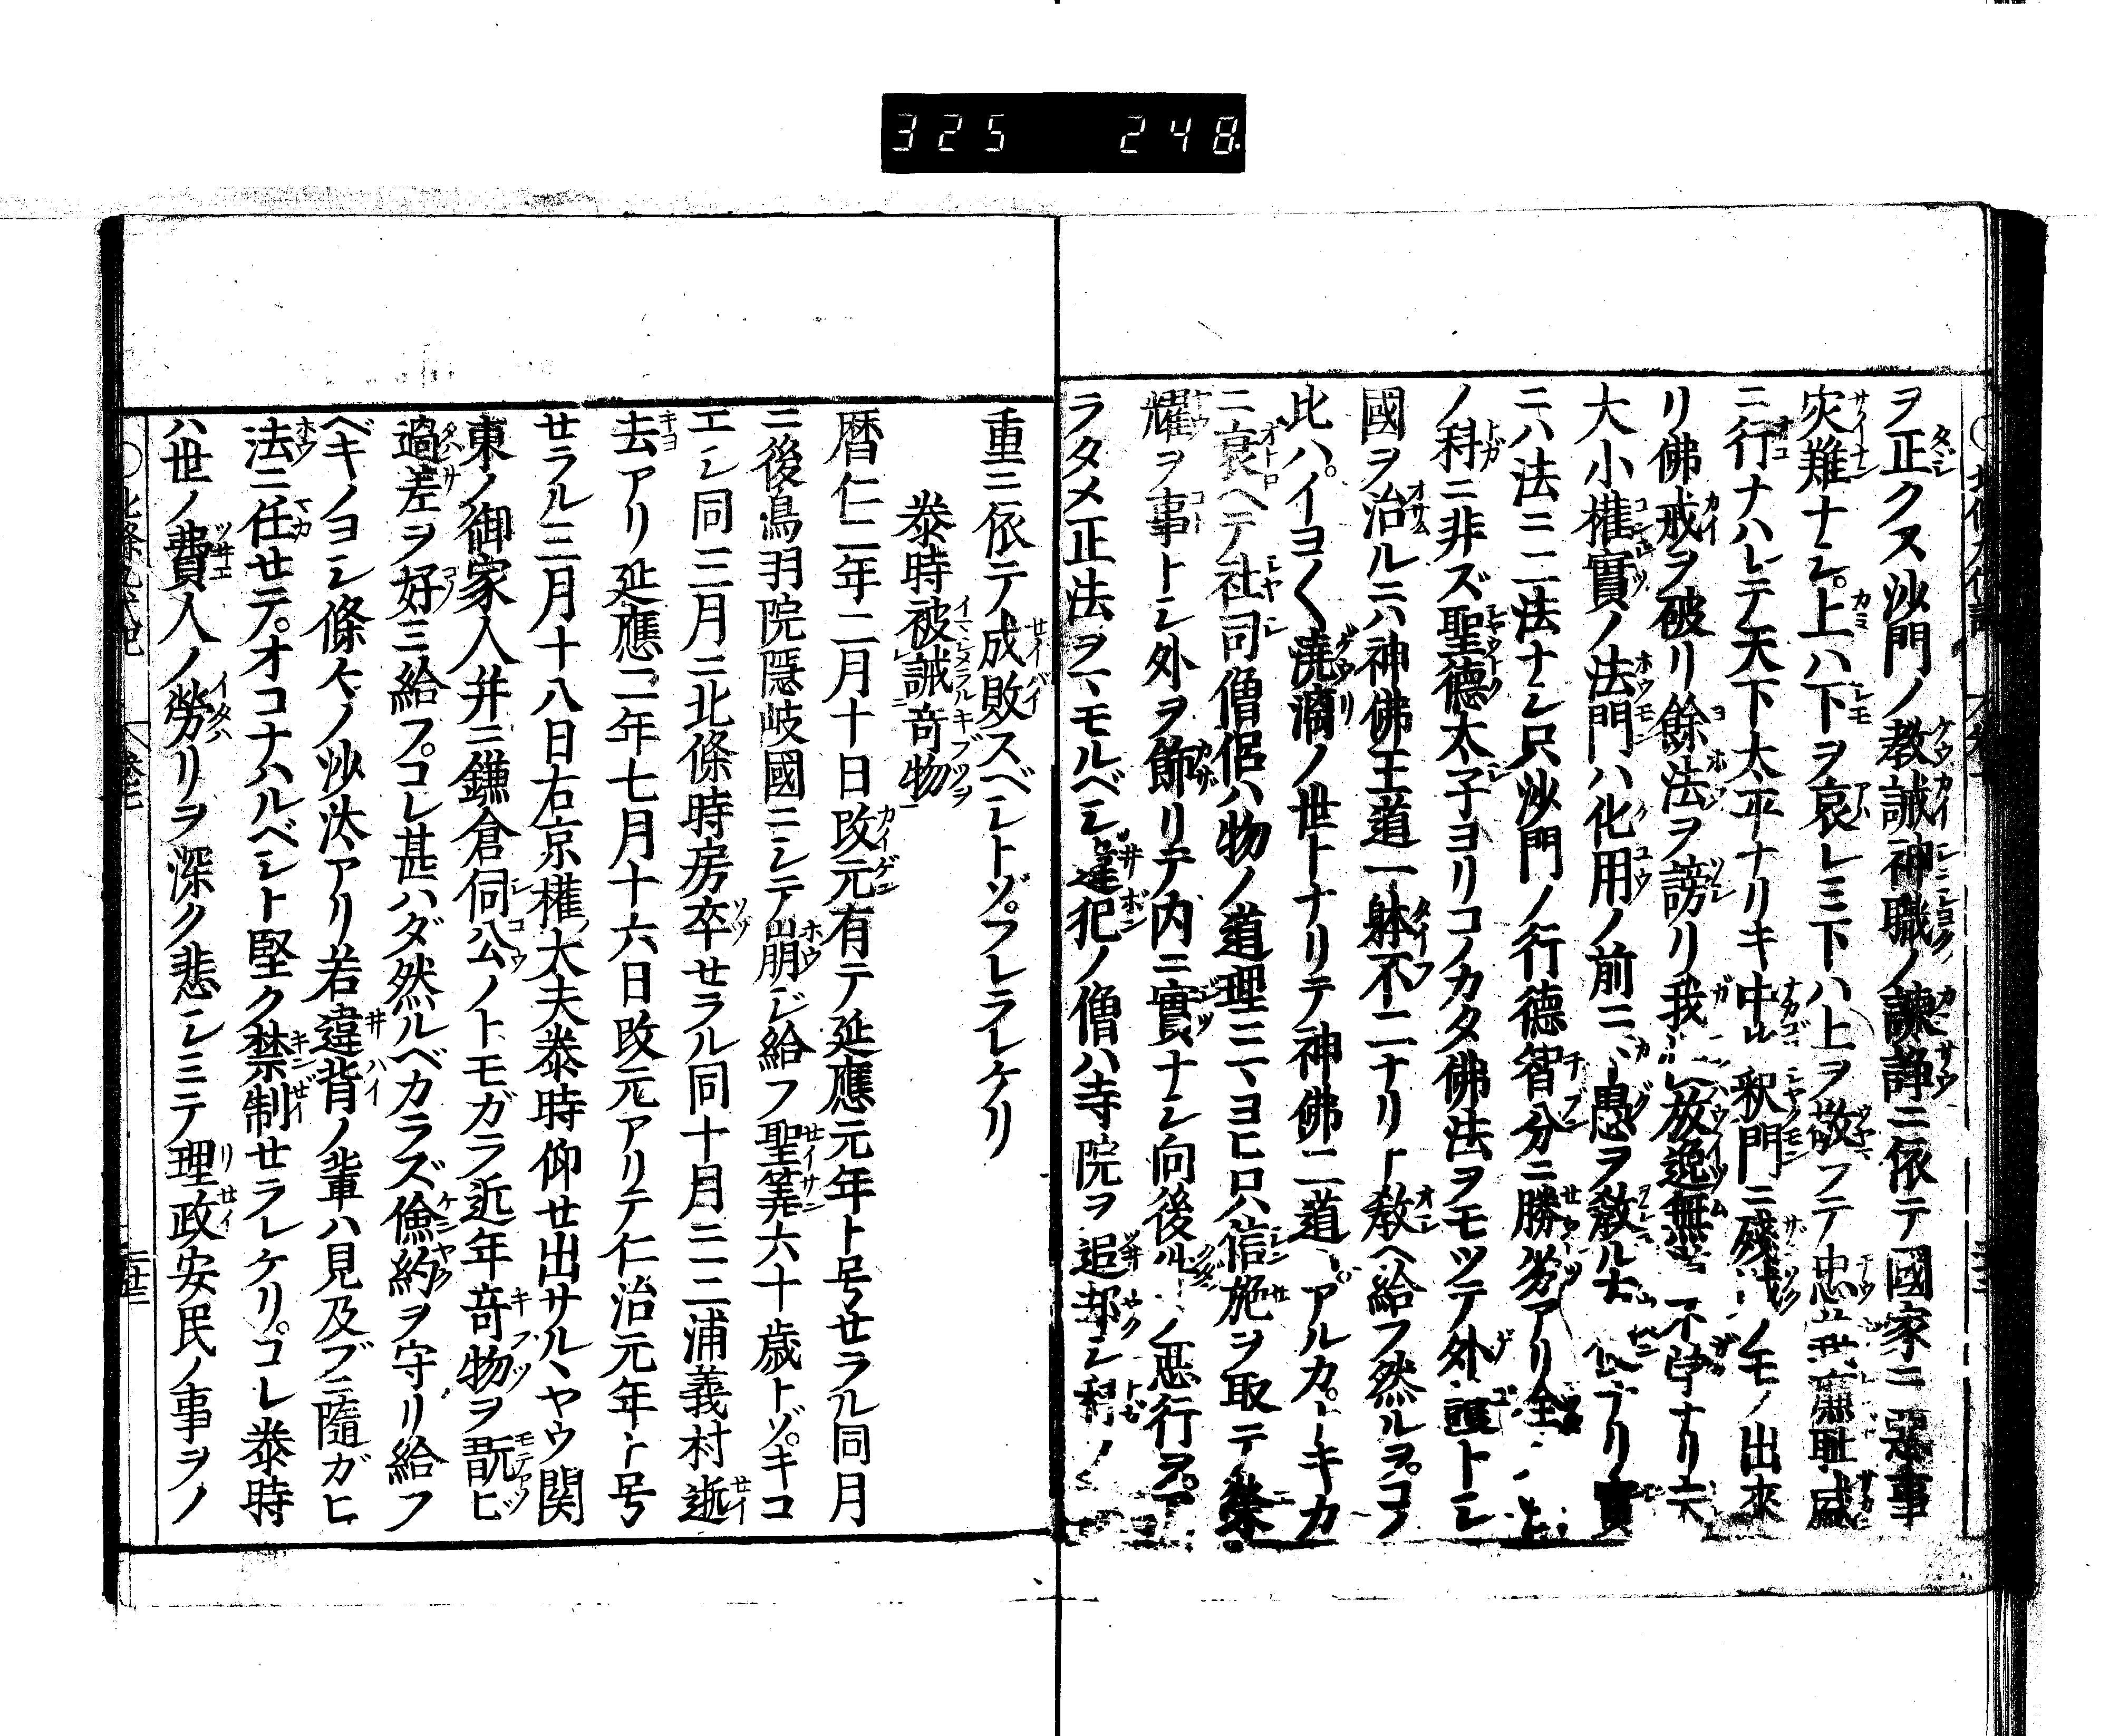 325 248
ヲ正クス沙門ノ教誡神職ノ諫諍ニ依テ國家ニ惡事
灾難ナシ上ハ下ヲ哀レミ下ハ上ヲ敬フテ忠 廉恥盛
ニ行ナハレテ天下太平ナリキ中比釈門ニ殘 ノモノ出來
リ佛戒ヲ破リ餘法ヲ謗リ我 放逸無 不 ナリ
大小權實ノ法門ハ化用ノ前ニ愚ヲ教ル 實
ニハ法ニ二法ナシ只沙門ノ行德智分ニ勝劣アリ全
ノ科ニ非ズ聖德太子ヨリコノカタ佛法ヲモツテ外護トシ
國ヲ治ルニハ神佛王道一躰不二ナリト教ヘ給フ然ルヲコノ
比ハイヨ〱澆漓ノ世トナリテ神佛二道 アルカ キカ
ニ衰ヘテ社司僧侶ハ物ノ道理ニヽヨヒ只信施ヲ取テ榮
耀ヲ事トシ外ヲ飾リテ内ニ實ナシ向後 ノ惡行ヲア
ラタメ正法ヲヽモルベシ違犯ノ僧ハ寺院ヲ追却シ科ノ
重ニ依テ成敗スベシトゾフレラレケリ
泰時被誡竒物
暦仁二年二月十日改元有テ延應元年ト号セラル同月
ニ後鳥羽院隱岐國ニシテ崩ジ給フ聖筭六十歳トゾキコ
エシ同三月ニ北條時房卒セラル同十月ニ三浦義村逝
去アリ延應二年七月十六日改元アリテ仁治元年ト号
セラル三月十八日右京權大夫泰時仰セ出サルヽヤウ関
東ノ御家人并ニ鎌倉伺公ノトモガラ近年竒物ヲ翫ビ
過差ヲ好ミ給フコレ甚ハダ然ルベカラズ儉約ヲ守リ給フ
ベキノヨシ條々ノ沙汰アリ若違背ノ輩ハ見及ブニ隨ガヒ
法ニ任セテオコナハルベシト堅ク禁制セラレケリコレ泰時
ハ世ノ費人ノ勞リヲ深ク悲シミテ理政安民ノ事ヲノ